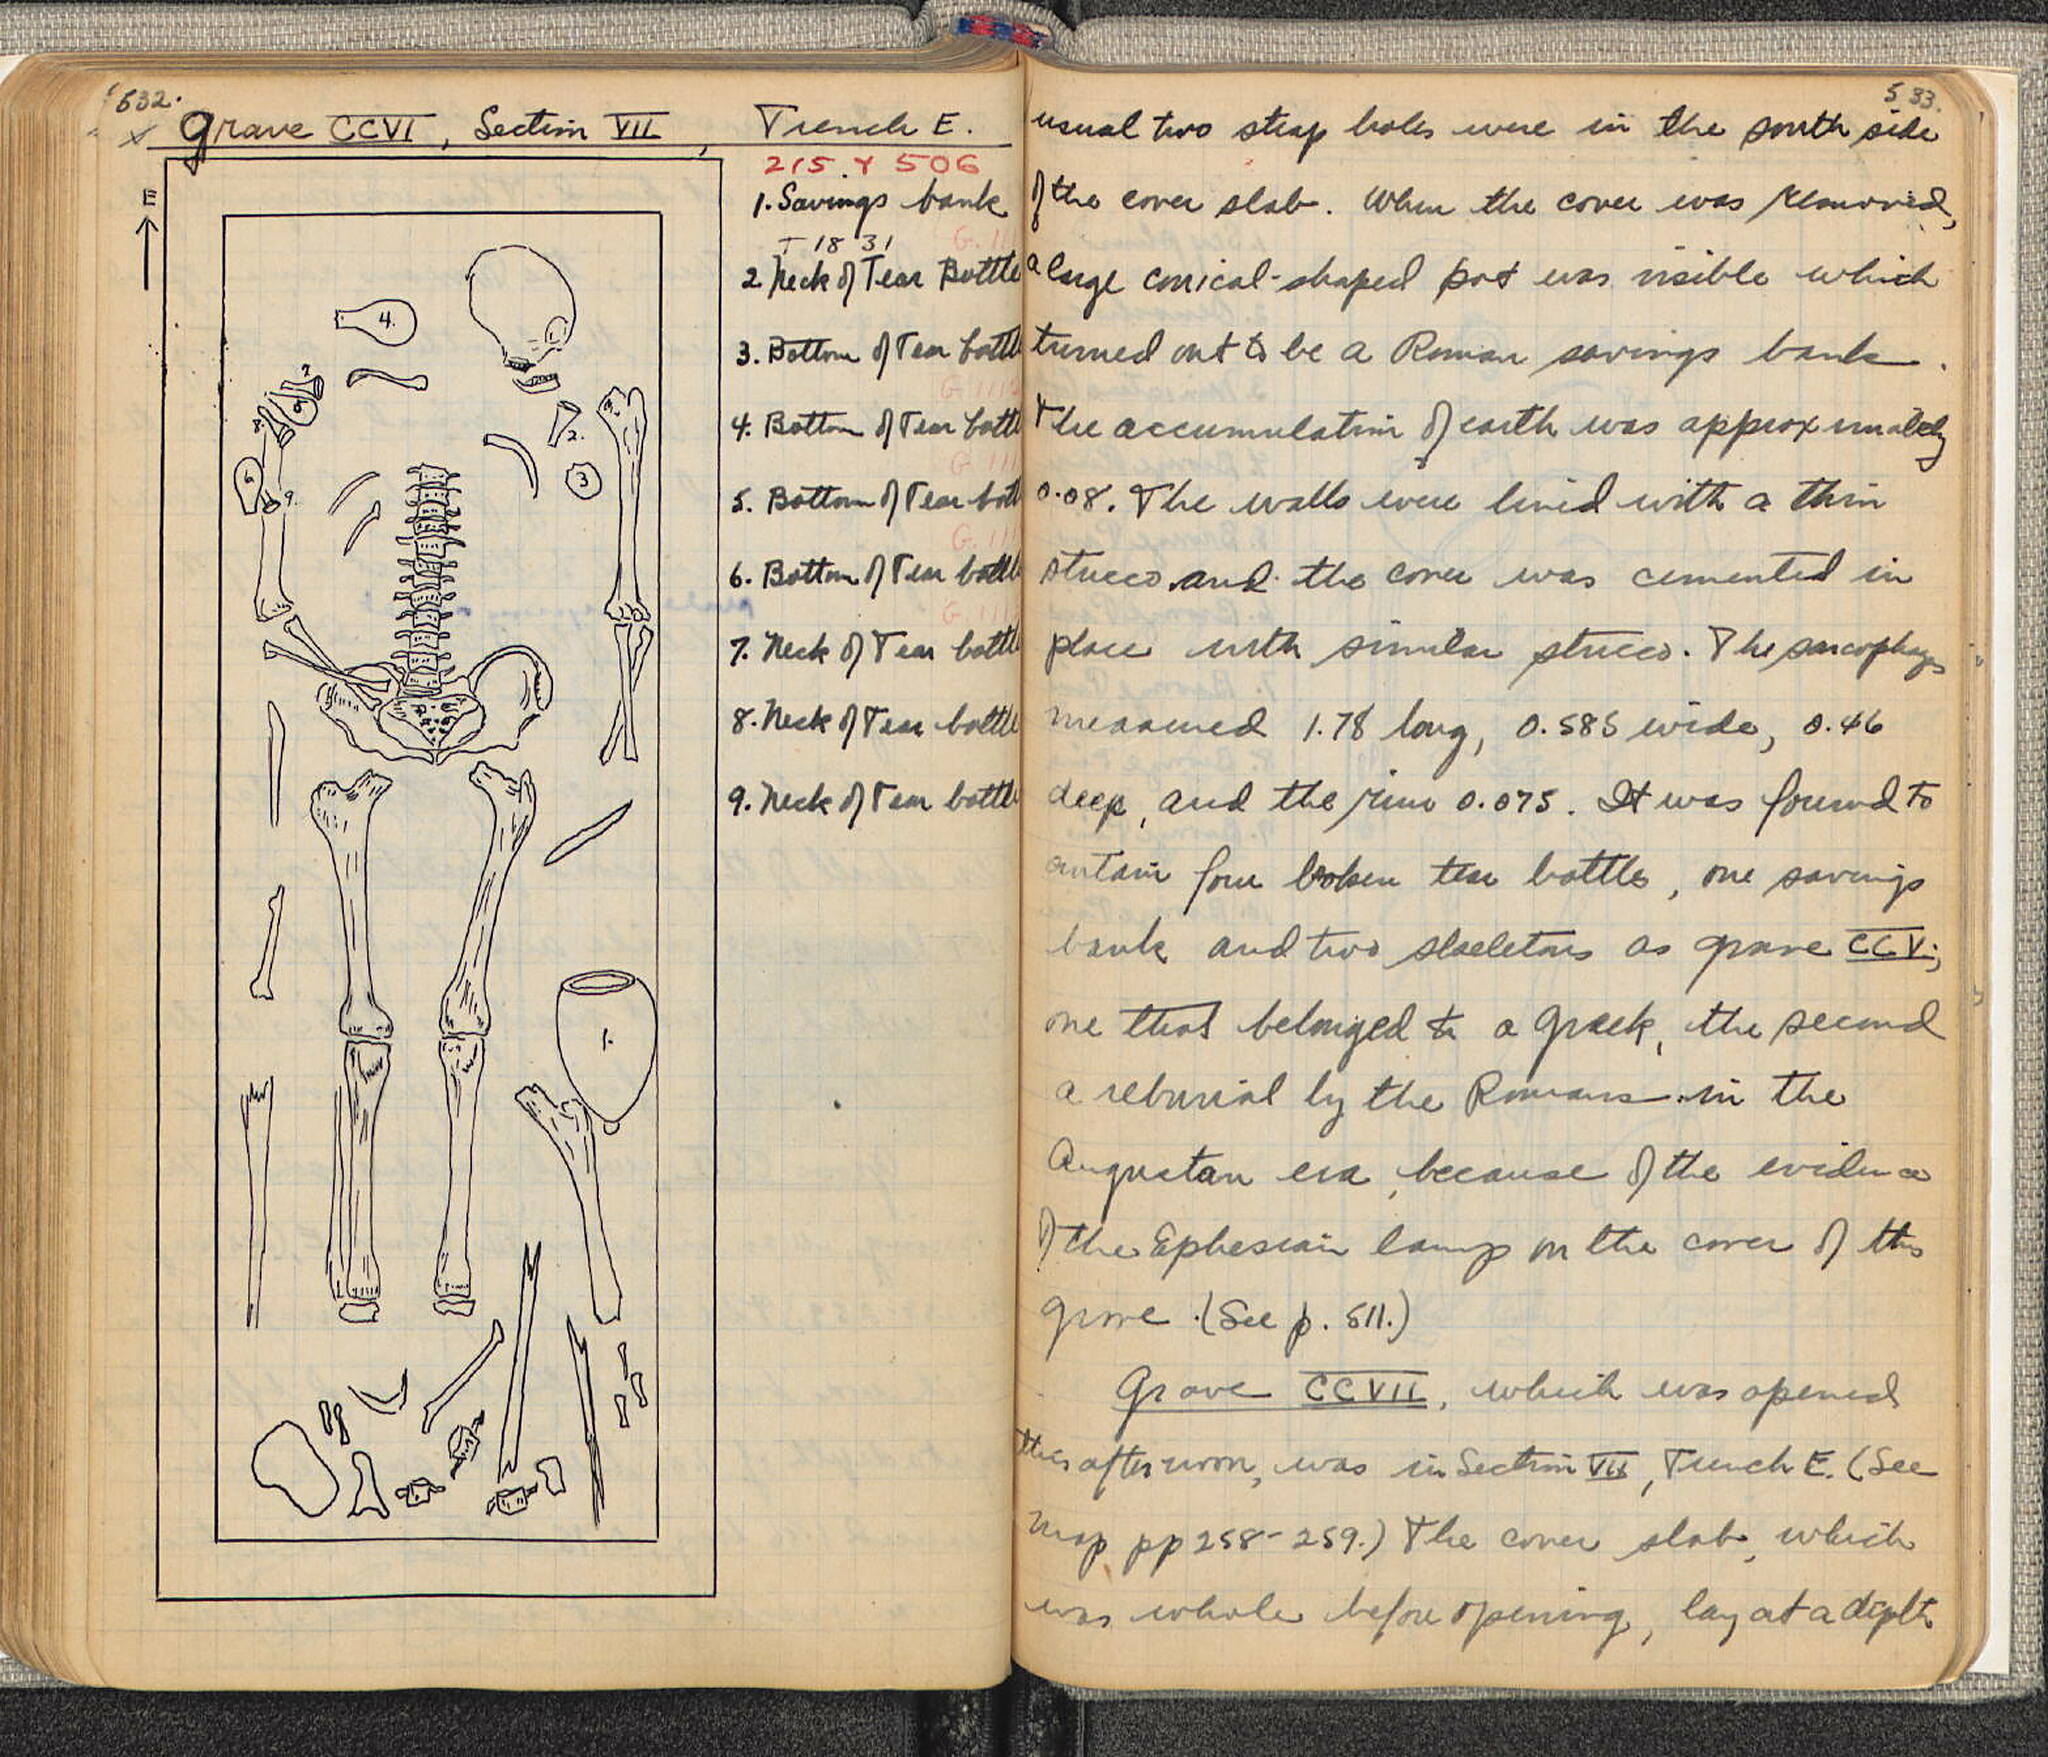 532.
Grave CCVI, Section VII, Trench E.
215 Y 506
E
1. Savings bank
T 18 31
2. Neck of Tear Bottle
3. Bottom of Tear bottl
G. 1112
4. Bottom of Tear bottl
G 111
5. Bottom of Tear bott
G. 111
6. Bottom of Tear bottle
G. 1112
7. Neck of Tear bottle
8. Neck of Tear bottle
9. Neck of Tear bottl
4.
7
8.
2.
3
9.
1.
533.
usual two strap holes were in the south side
of the cover slab. When the cover was removed,
a large conical-shaped pot was visible which
turned out to be a Roman savings bank.
The accumulation of earth was approximately
0.08. The walls were lined with a thin
stucco and the cover was cemented in
place with similar stucco. The sarcophagus
measured 1.78 long, 0.585 wide, 0.46
deep, and the rim 0.075. It was found to
contain four broken tear bottles, one savings
bank and two skeletons as grave CCV;
one that belonged to a Greek, the second
a reburial by the Romans in the
Augustan era, because of the evidence
of the Ephesian lamp on the cover of this
grave. (See p. 511.)
Grave CCVII, which was opened
this afternoon, was in Section VII, Trench E. (See
Map pp 258-259.) The cover slab, which
was whole before opening, lay at a depth